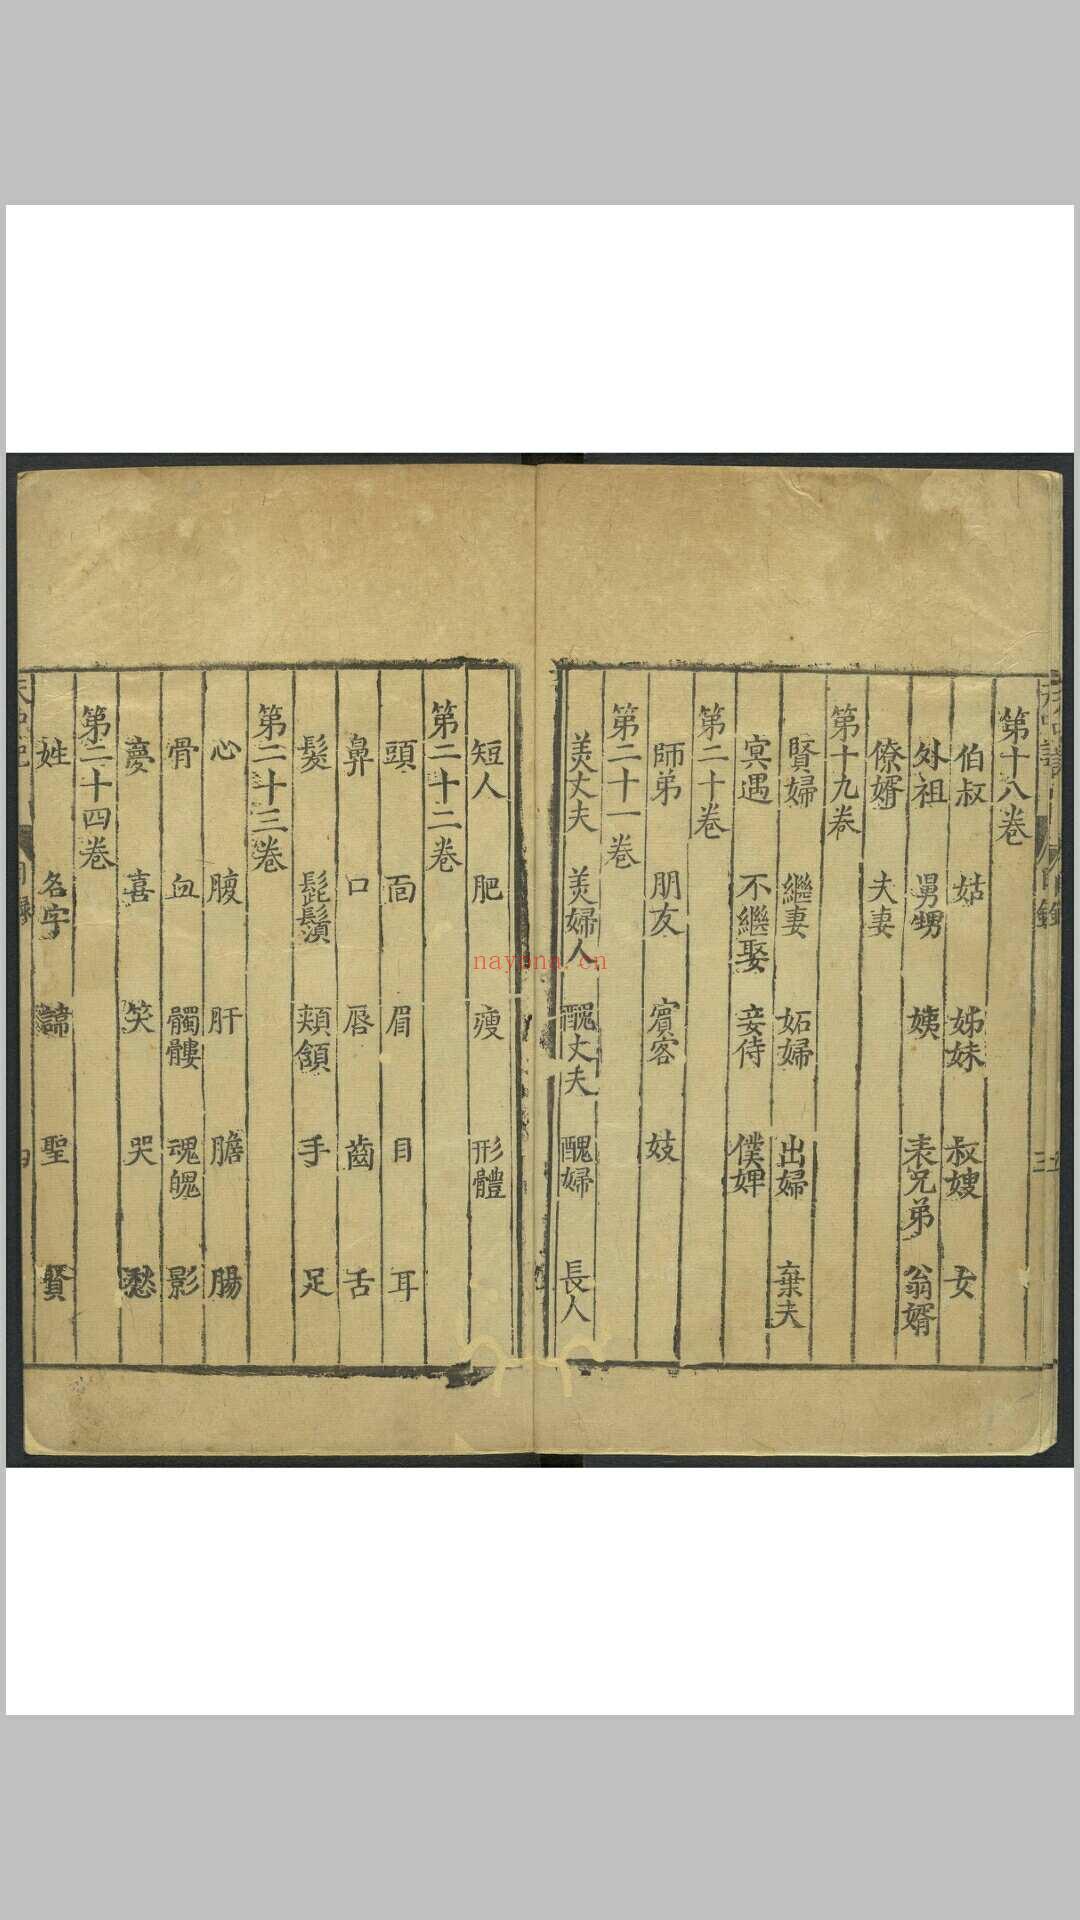 第十八卷
伯叔 姑 姊妹 叔嫂 女
外祖 舅甥 姨 表兄弟 翁婿
僚婿 夫妻
第十九卷
賢婦 繼妻 妬婦 出婦 棄夫
冥遇 不繼娶 妾侍 僕婢
第二十卷
師弟 朋友 賓客 妓
第二十一卷
美丈夫 美婦人 醜丈夫 醜婦 長人
短人 肥 瘦 形體
第二十二卷
頭 面 眉 目 耳
鼻 口 唇 齒 舌
髮 髭鬚 頰頷 手 足
第二十三卷
心 腹 肝 膽 腸
骨 血 髑髏 魂魄 影
夢 喜 笑 哭 愁
第二十四卷
姓 名字 諱 聖 賢
nayona.cn